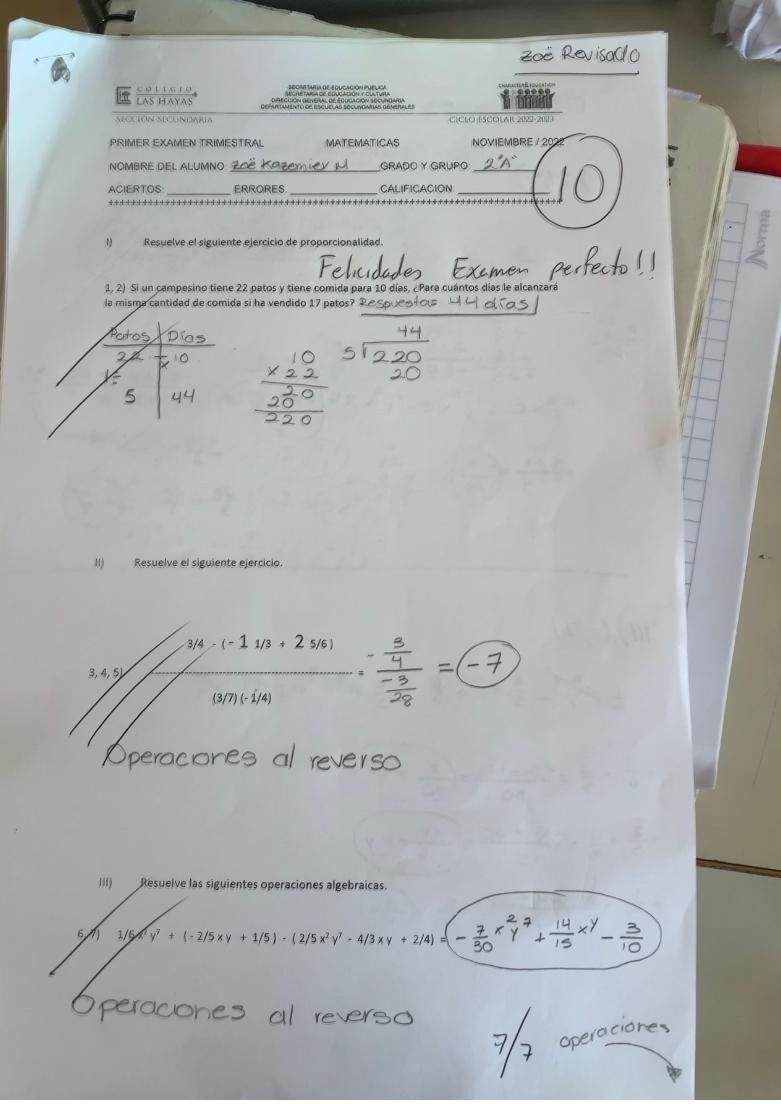 Zoë Revisado
COLEGIO
LAS HAYAS
SECCIÓN SECUNDARIA
SECRETARÍA DE EDUCACIÓN PÚBLICA
SECRETARÍA DE EDUCACIÓN Y CULTURA
DIRECCIÓN GENERAL DE EDUCACIÓN SECUNDARIA
DEPARTAMENTO DE ESCUELAS SECUNDARIAS GENERALES
CICLO ESCOLAR 2022-2023
PRIMER EXAMEN TRIMESTRAL MATEMATICAS NOVIEMBRE / 2022
NOMBRE DEL ALUMNO: Zoë Kazemier M GRADO Y GRUPO: 2°A"
ACIERTOS: ERRORES. CALIFICACION:
10
I) Resuelve el siguiente ejercicio de proporcionalidad.
Felicidades Examen perfecto!!
1, 2) Si un campesino tiene 22 patos y tiene comida para 10 días, ¿Para cuántos días le alcanzará
la misma cantidad de comida si ha vendido 17 patos? Respuesta= 44 días
Patos Días
22 10
5 44
10
x 22
20
20
220
44
5 220
20
II) Resuelve el siguiente ejercicio.
3/4 - (- 1 1/3 + 2 5/6 )
3, 4, 5) = - 3/4 / -3/28 = -7
(3/7) (- 1/4)
Operaciones al reverso
III) Resuelve las siguientes operaciones algebraicas.
6, 7) 1/6 x² y⁷ + ( - 2/5 x y + 1/5 ) - ( 2/5 x² y⁷ - 4/3 x y + 2/4) = - 7/30 x² y⁷ + 14/15 xy - 3/10
Operaciones al reverso
7/7 operaciones
Norma